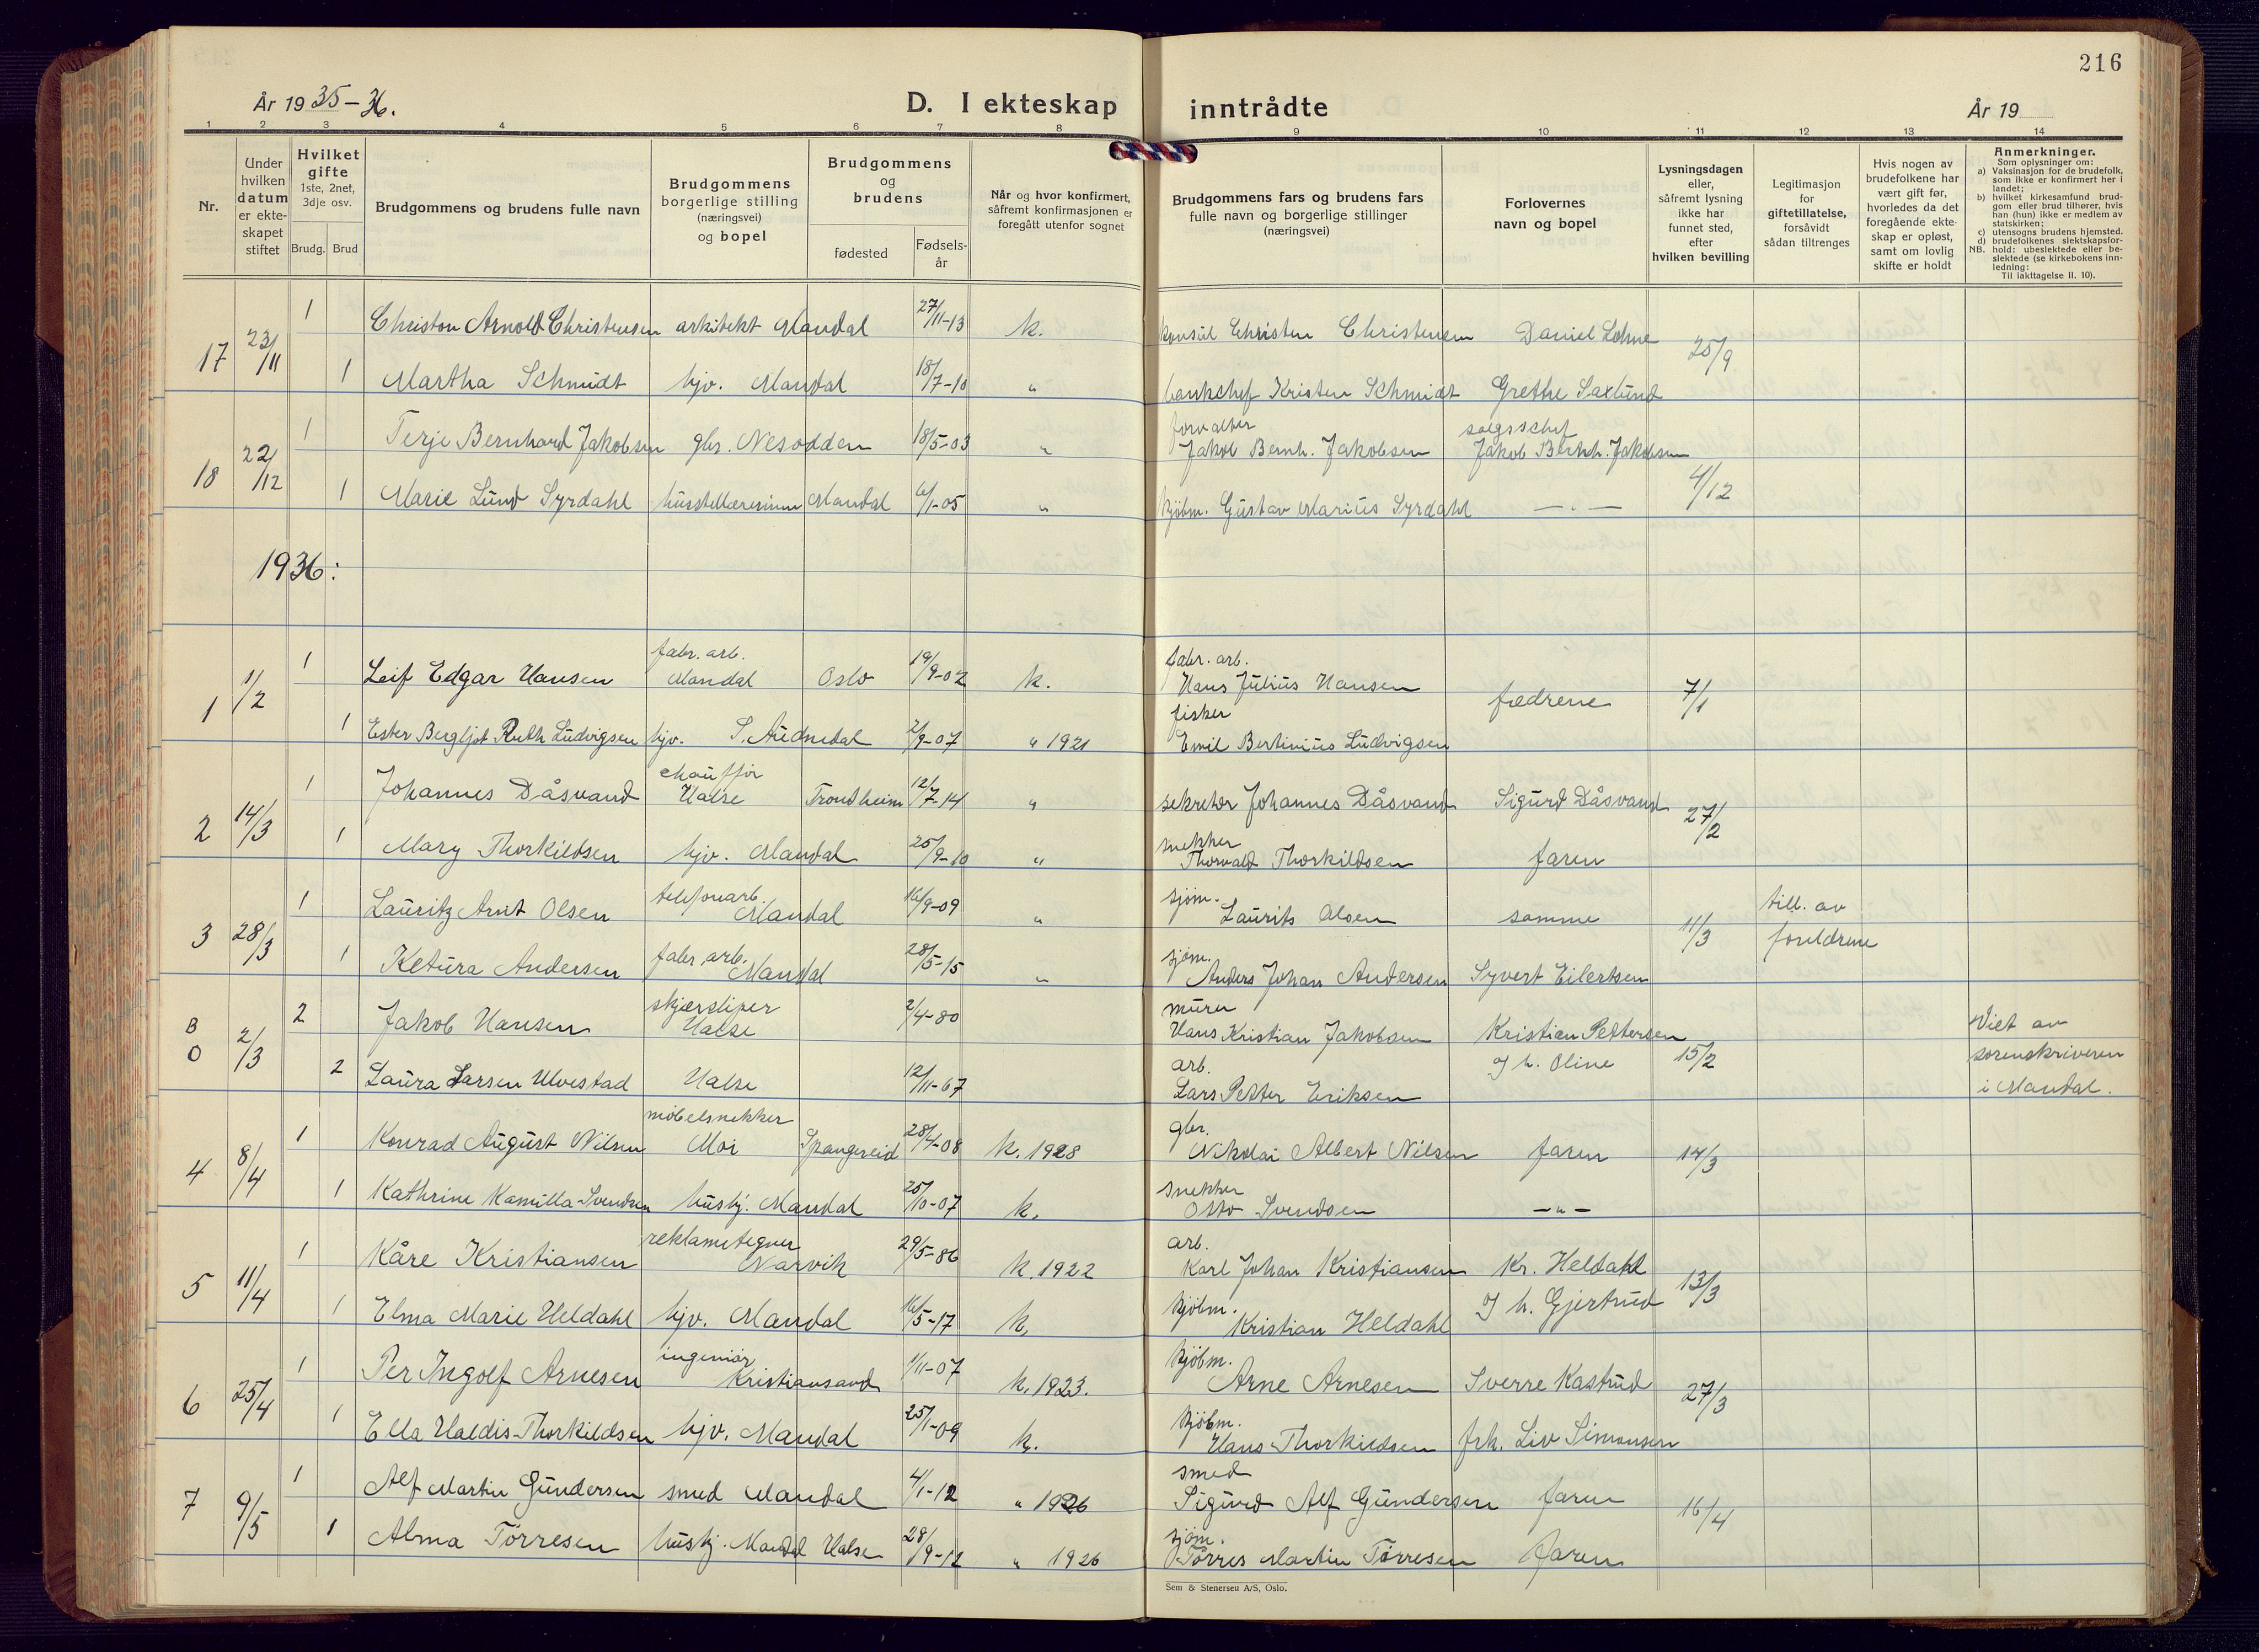 216
År 1935-36.
D. I ekteskap inntrådte
År 19
1 2 3 4 5 6 7 8 9 10 11 12 13 14
Nr.
Under
hvilken
datum
er ekte-
skapet
stiftet
Hvilket
gifte
1ste, 2net,
3dje osv.
Brudg. Brud
Brudgommens og brudens fulle navn
Brudgommens
borgerlige stilling
(næringsvei)
og bopel
Brudgommens
og
brudens
fødested
Fødsels-
år
Når og hvor konfirmert,
såfremt konfirmasjonen er
foregått utenfor sognet
Brudgommens fars og brudens fars
fulle navn og borgerlige stillinger
(næringsvei)
Forlovernes
navn og bopel
Lysningsdagen
eller,
såfremt lysning
ikke har
funnet sted,
efter
hvilken bevilling
Legitimasjon
for
giftetillatelse,
forsåvidt
sådan tiltrenges
Hvis nogen av
brudefolkene har
vært gift før,
hvorledes da det
foregående ekte-
skap er opløst,
samt om lovlig
skifte er holdt
Anmerkninger.
Som oplysninger om:
a) Vaksinasjon for de brudefolk,
som ikke er konfirmert her i
landet;
b) hvilket kirkesamfund brud-
gom eller brud tilhører, hvis
han (hun) ikke er medlem av
statskirken;
c) utensogns brudens hjemsted.
d) brudefolkenes slektskapsfor-
NB. hold: ubeslektede eller be-
slektede (se kirkebokens inn-
ledning:
Til iakttagelse II. 10).
17 23/11 1 Christen Arnold Christensen arkitekt Mandal 27/11-13 k. konsul Christen Christensen Daniel Lohne 25/9
1 Martha Schmidt hjv. Mandal 18/7-10 " bankchef Kristen Schmidt Grethe Saxlund
18 22/12 1 Terje Bernhard Jakobsen gbr. Nesodden 18/5-03 " forvalter Jakob Bernh. Jakobsen salgsschef Jakob Bernh. Jakobsen 4/12
1 Marie Lund Syrdahl husstellærerinne Mandal 6/1-05 " kjøbm. Gustav Marius Syrdahl — " —
1936:
1 1/2 1 Leif Edgar Hansen fabr. arb. Mandal Oslo 19/9-02 k. fabr. arb. Hans Julius Hansen fedrene 7/1
1 Ester Bergljot Ruth Ludvigsen hjv. S. Audnedal 2/9-07 " 1921 fisker Emil Bertinius Ludvigsen
2 14/3 1 Johannes Dåsvand chauffør Halse Trondheim 12/7-14 " sekretær Johannes Dåsvand Sigurd Dåsvand 27/2
1 Mary Thorkildsen hjv. Mandal 25/9-10 " snekker Thorvald Thorkildsen faren
3 28/3 1 Lauritz Arnt Olsen telefonarb. Mandal 16/9-09 " sjøm. Laurits Olsen samme 11/3 till. av foreldrene
1 Ketura Andersen fabr. arb. Mandal 28/5-15 " sjøm. Anders Johan Andersen Syvert Eilertsen
B
0 2/3 2 Jakob Hansen skjærsliper Halse 2/4-80 murer Hans Kristian Jakobsen Kristian Pettersen 15/2 Viet av
2 Laura Larsen Ulvestad Halse 12/11-67 arb. Lars Petter Eriksen og h. Oline sorenskriveren
i Mandal.
4 8/4 1 Konrad August Nilsen møbelsnekker Moi Spangereid 28/4-08 k. 1928 gbr. Nikolai Albert Nilsen faren 14/3
1 Kathrine Kamilla Svendsen hushj. Mandal 25/10-07 k. snekker Otto Svendsen — " —
5 11/4 1 Kåre Kristiansen reklametegner Narvik 29/5-86 k. 1922 arb. Karl Johan Kristiansen Kr. Heldahl 13/3
1 Elma Marie Heldahl hjv. Mandal 16/5-17 k. kjøbm. Kristian Heldahl og h. Gjertrud
6 25/4 1 Per Ingolf Arnesen ingeniør Kristiansand 1/11-07 k. 1923. kjøbm. Arne Arnesen Sverre Kastrud 27/3
1 Ella Haldis Thorkildsen hjv. Mandal 25/1-09 k. kjøbm. Hans Thorkildsen frk. Liv Simonsen
7 9/5 1 Alf Martin Gundersen smed Mandal 4/1-12 " 1926 smed Sigurd Alf Gundersen faren 16/4
1 Alma Tørresen hushj. Mandal Halse 28/9-12 " 1926 sjøm. Tørres Martin Tørresen faren
Sem & Stenersen A/S, Oslo.